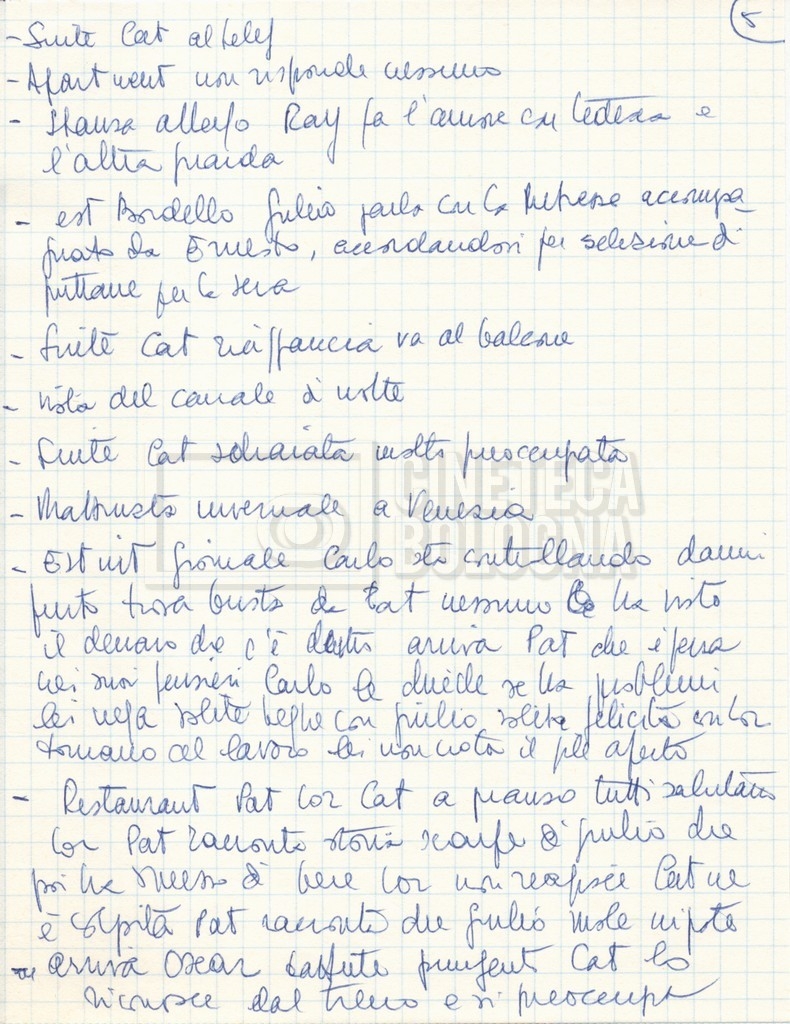 5
- Suite Cat al telef
- Apartment non risponde nessuno
- Stanza albergo Ray fa l'amore con tedesca e
l'altra guarda
- est Bordello Giulio parla con la
gnato da Ernesto, accordandosi per selezione di
puttane per la sera
- Suite Cat riaffaccia va al balcone
- vista del canale di notte
- Suite Cat sdraiata molto preoccupata
- Mattinata invernale a Venezia
- Est int giornale Carlo sta controllando danni
furto trova busta di Cat nessuno ha visto
il denaro che c'è dentro arriva Pat che è persa
nei suoi pensieri Carlo le chiede se ha problemi
lei nega solite beghe con Giulio solita felicità con Lor
tornano al lavoro lei non nota il aperto
- Restaurant Pat Lor Cat a pranzo tutti salutano
Lor Pat racconta storia scarpe di Giulio che
poi ha smesso di bere Lor non reagisce Cat ne
è colpita Pat racconta che Giulio vuole nipote
arriva Oscar battute pungenti Cat lo
riconosce dal treno e si preoccupa
CINETECA
BOLOGNA